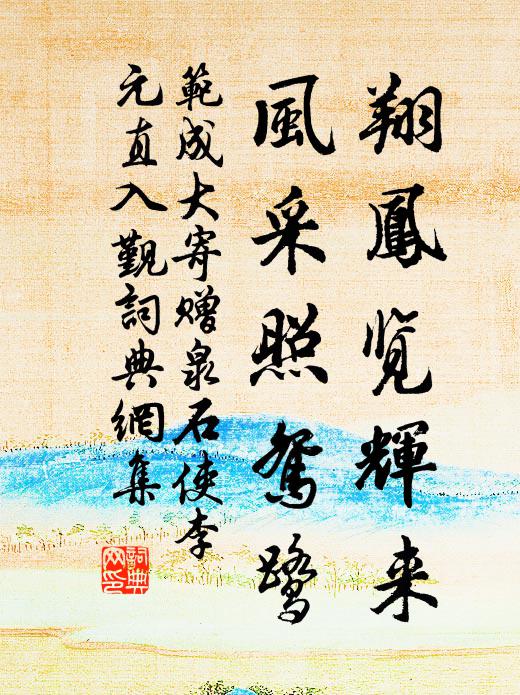 翔鳳览輝来
風采照鴛鷺
範成大寄贈泉石使李
元直入觐詞典網集
詞典
网印